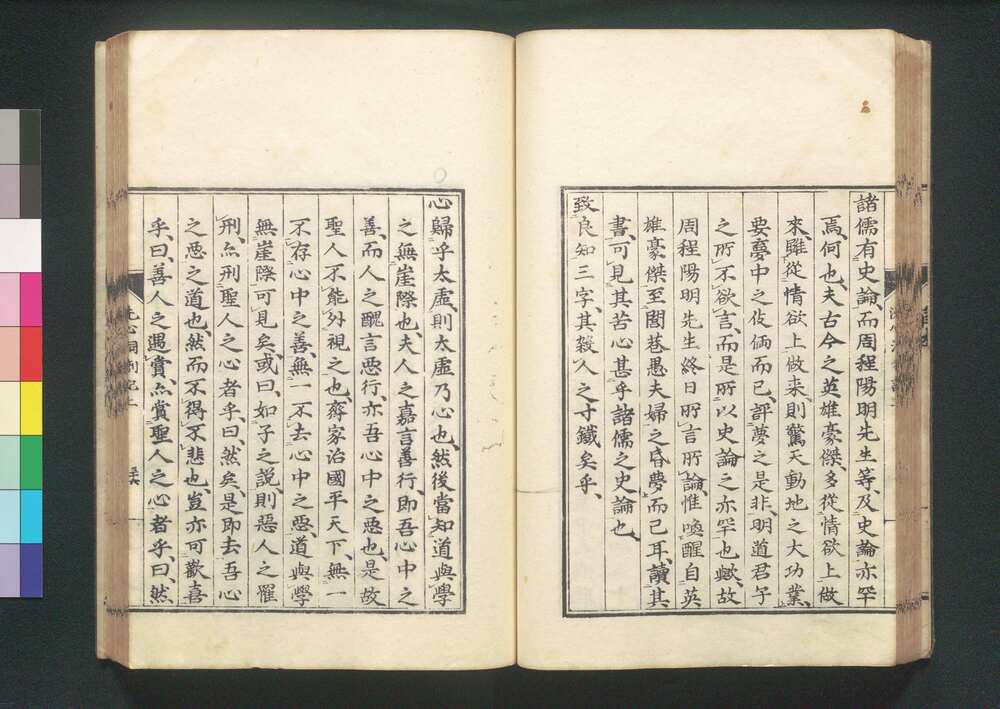 諸儒有史論、而周程陽明先生等、及史論亦罕
焉、何也、夫古今之英雄豪傑、多從情欲上做
來、雖從情欲上做来、則驚天動地之大功業、
要夢中之伎倆而已、評夢之是非、明道君子
之所不欲言、而是所以史論之亦罕也歟、故
周程陽明先生終日所言所論、惟喚醒自英
雄豪傑至閭巷愚夫婦之昏夢而已耳、讀其
書、可見其苦心甚乎諸儒之史論也、
致良知三字、其殺人之寸鐵矣乎、
心歸乎太虛、則太虛乃心也、然後當知道與學
之無崖際也、夫人之嘉言善行、即吾心中之
善、而人之醜言惡行、亦吾心中之惡也、是故
聖人不能外視之也、齊家治國平天下、無一
不存心中之善、無一不去心中之惡、道與學
無崖際可見矣、或曰、如子之說、則惡人之罹
刑、亦刑聖人之心者乎、曰、然矣、是即去吾心
之惡之道也、然而不得不悲也、豈亦可歡喜
乎、曰、善人之遇賞、亦賞聖人之心者乎、曰、然
洗心洞劄記上